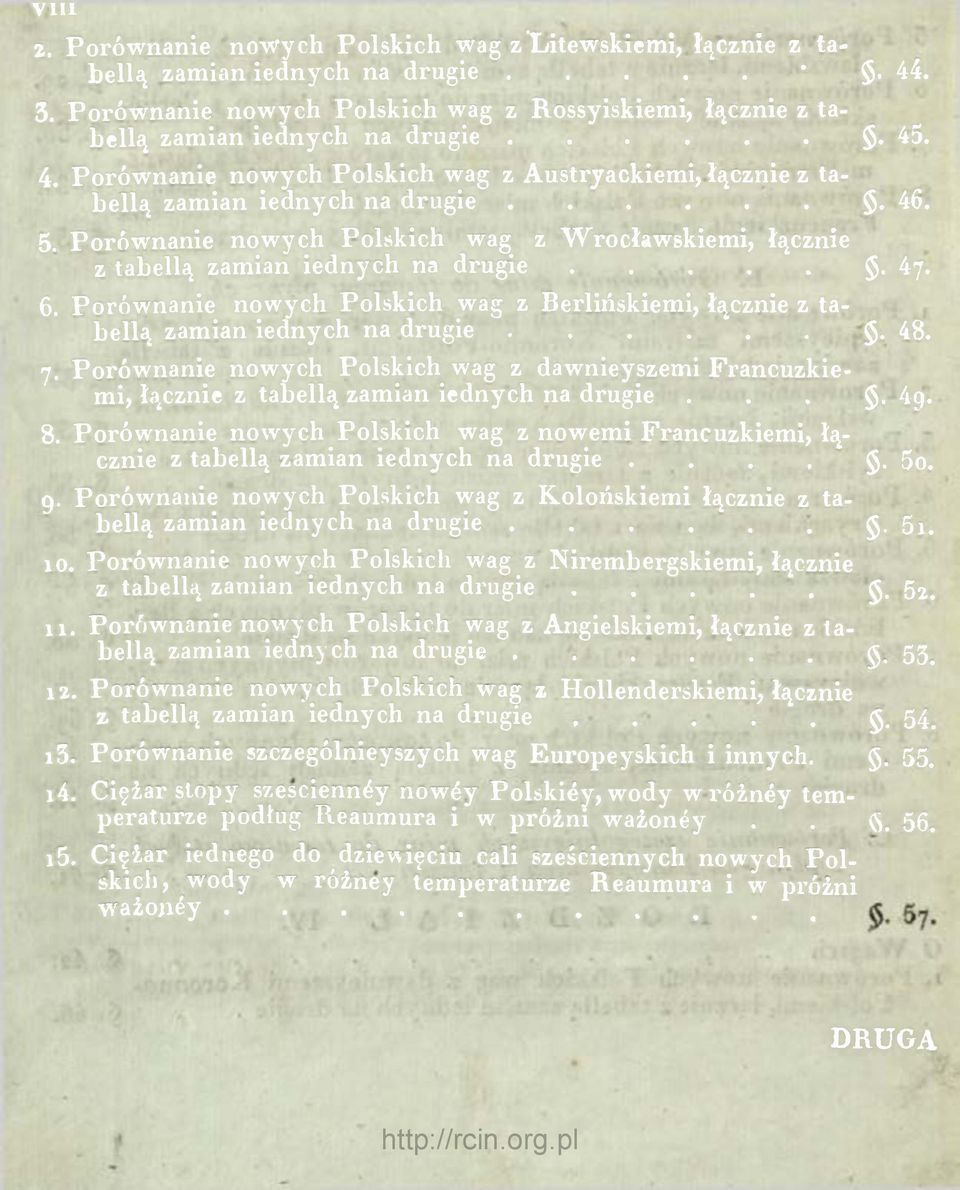 VIII
2. Porównanie nowych Polskich wag z Litewskiemi, łącznie z ta-
bellą zamian iednych na drugie . . . . . . §. 44.
3. Porównanie nowych Polskich wag z Rossyiskiemi, łącznie z ta-
bellą zamian iednych na drugie . . . . . . §. 45.
4. Porównanie nowych Polskich wag z Austryackiemi, łącznie z ta-
bellą zamian iednych na drugie . . . . . . §. 46.
5. Porównanie nowych Polskich wag z Wrocławskiemi, łącznie
z tabellą zamian iednych na drugie . . . . . §. 47.
6. Porównanie nowych Polskich wag z Berlińskiemi, łącznie z ta-
bellą zamian iednych na drugie . . . . . . §. 48.
7. Porównanie nowych Polskich wag z dawnieyszemi Francuzkie-
mi, łącznie z tabellą zamian iednych na drugie . . . §. 49.
8. Porównanie nowych Polskich wag z nowemi Francuzkiemi, łą-
cznie z tabellą zamian iednych na drugie . . . . §. 50.
9. Porównanie nowych Polskich wag z Kolońskiemi łącznie z ta-
bellą zamian iednych na drugie . . . . . . §. 51.
10. Porównanie nowych Polskich wag z Nirembergskiemi, łącznie
z tabellą zamian iednych na drugie . . . . . §. 52.
11. Porównanie nowych Polskich wag z Angielskiemi, łącznie z ta-
bellą zamian iednych na drugie . . . . . . §. 53.
12. Porównanie nowych Polskich wag z Hollenderskiemi, łącznie
z tabellą zamian iednych na drugie . . . . . §. 54.
13. Porównanie szczególnieyszych wag Europeyskich i innych. §. 55.
14. Ciężar stopy sześciennéy nowéy Polskiéy, wody w różnéy tem-
peraturze podług Reaumura i w próżni ważonéy . . §. 56.
15. Ciężar iednego do dziewięciu cali sześciennych nowych Pol-
skich, wody w różnéy temperaturze Reaumura i w próżni
ważonéy . . . . . . . . . . . §. 57.
DRUGA
http://rcin.org.pl